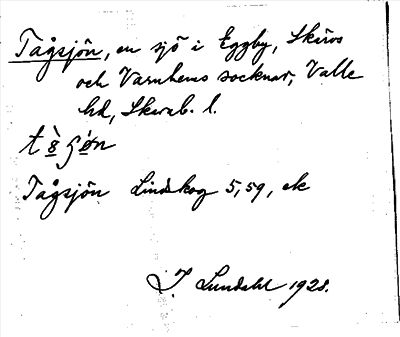 Tågsjön, en sjö i Eggby, Skärvs
och Varnhems socknar, Valle
hd, Skarab. l.
Tågsjön Lindskog 5, 59, ek
I Lundahl 1928.